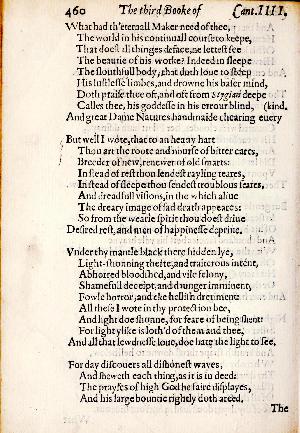 460 The third Booke of Cant. IIII.
What had th'eternall Maker need of thee,
The world in his continuall course to keepe,
That doest all thinges deface, ne lettest see
The beautie of his worke? Indeed in sleepe
The slouthfull body, that doth loue to steep
His lustlesse limbes, and drowne his baser mind,
Doth praise thee oft, and oft from Stygian deepe
Calles thee, his goddesse in his errour blind, (kind.
And great Dame Natures handmaide chearing euery
But well I wote, that to an heauy hart
Thou art the roote and nourse of bitter cares,
Breeder of new, renewer of old smarts:
Instead of rest thou lendest rayling teares,
Instead of sleepe thou sendest troublous feares,
And dreadfull visions, in the which aliue
The dreary image of sad death appeares:
So from the wearie spirit thou doest driue
Desired rest, and men of happinesse depriue.
Vnder thy mantle black there hidden lye,
Light-shonning thefte, and traiterous intent,
Abhorred bloodshed, and vile felony,
Shamefull deceipt, and daunger imminent,
Fowle horror, and eke hellish dreriment
All these I wote in thy protection bee,
And light doe shonne, for feare of being shent:
For light ylike is loth'd of them and thee,
And all that lewdnesse loue, doe hate the light to see.
For day discouers all dishonest waves,
And sheweth each thing, as it is in deed:
The prayses of high God he faire displayes,
And his large bountie rightly doth areed.
The